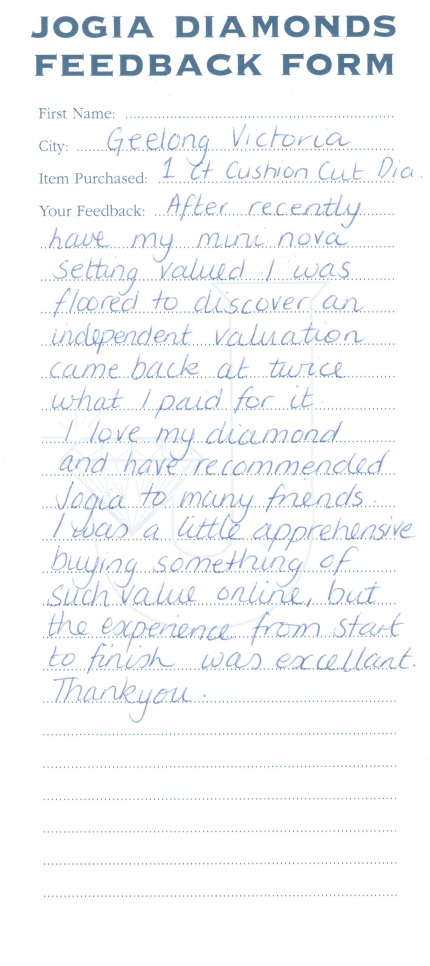 JOGIA DIAMONDS
FEEDBACK FORM
First Name:
City: Geelong Victoria
Item Purchased: 1 ct Cushion Cut Dia.
Your Feedback: After recently
have my mini nova
setting valued I was
floored to discover an
independent valuation
came back at twice
what I paid for it.
I love my diamond
and have recommended
Jogia to many friends.
I was a little apprehensive
buying something of
such value online, but
the experience from start
to finish was excellant.
Thankyou.